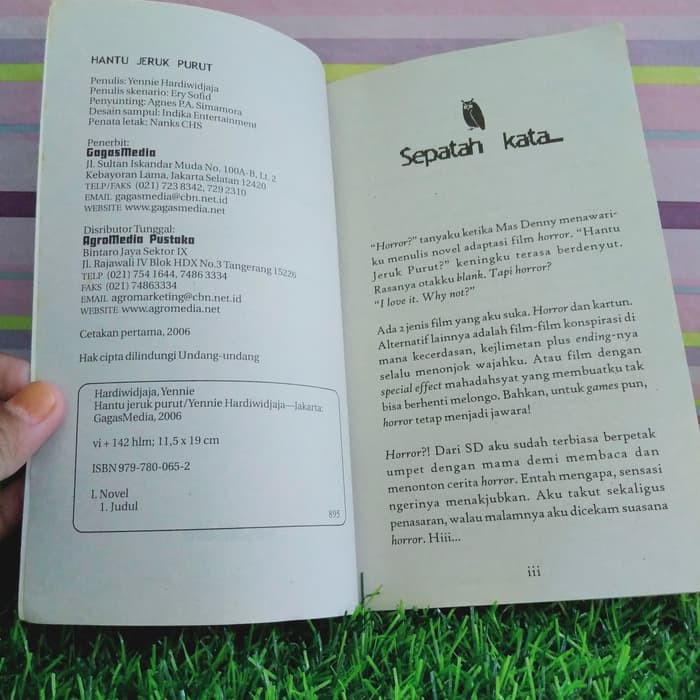 HANTU JERUK PURUT
Penulis: Yennie Hardiwidjaja
Penulis skenario: Ery Sofid
Penyunting: Agnes P.A. Simamora
Desain sampul: Indika Entertainment
Penata letak: Nanks CHS
Penerbit:
GagasMedia
Jl. Sultan Iskandar Muda No. 100A-B, Lt. 2
Kebayoran Lama, Jakarta Selatan 12420
TELP/FAKS (021) 723 8342, 729 2310
EMAIL gagasmedia@cbn.net.id
WEBSITE www.gagasmedia.net
Distributor Tunggal:
AgroMedia Pustaka
Bintaro Jaya Sektor IX
Jl. Rajawali IV Blok HDX No.3 Tangerang 15226
TELP (021) 754 1644, 7486 3334
FAKS (021) 74863334
EMAIL agromarketing@cbn.net.id
WEBSITE www.agromedia.net
Cetakan pertama, 2006
Hak cipta dilindungi Undang-undang
Hardiwidjaja, Yennie
Hantu jeruk purut/Yennie Hardiwidjaja—Jakarta:
GagasMedia, 2006
vi + 142 hlm; 11,5 x 19 cm
ISBN 979-780-065-2
I. Novel
1. Judul
895
Sepatah kata_
"Horror?" tanyaku ketika Mas Denny menawari-
ku menulis novel adaptasi film horror. "Hantu
Jeruk Purut?" keningku terasa berdenyut.
Rasanya otakku blank. Tapi horror?
"I love it. Why not?"
Ada 2 jenis film yang aku suka. Horror dan kartun.
Alternatif lainnya adalah film-film konspirasi di
mana kecerdasan, kejlimetan plus ending-nya
selalu menonjok wajahku. Atau film dengan
special effect mahadahsyat yang membuatku tak
bisa berhenti melongo. Bahkan, untuk games pun,
horror tetap menjadi jawara!
Horror?! Dari SD aku sudah terbiasa berpetak
umpet dengan mama demi membaca dan
menonton cerita horror. Entah mengapa, sensasi
ngerinya menakjubkan. Aku takut sekaligus
penasaran, walau malamnya aku dicekam suasana
horror. Hiii...
iii